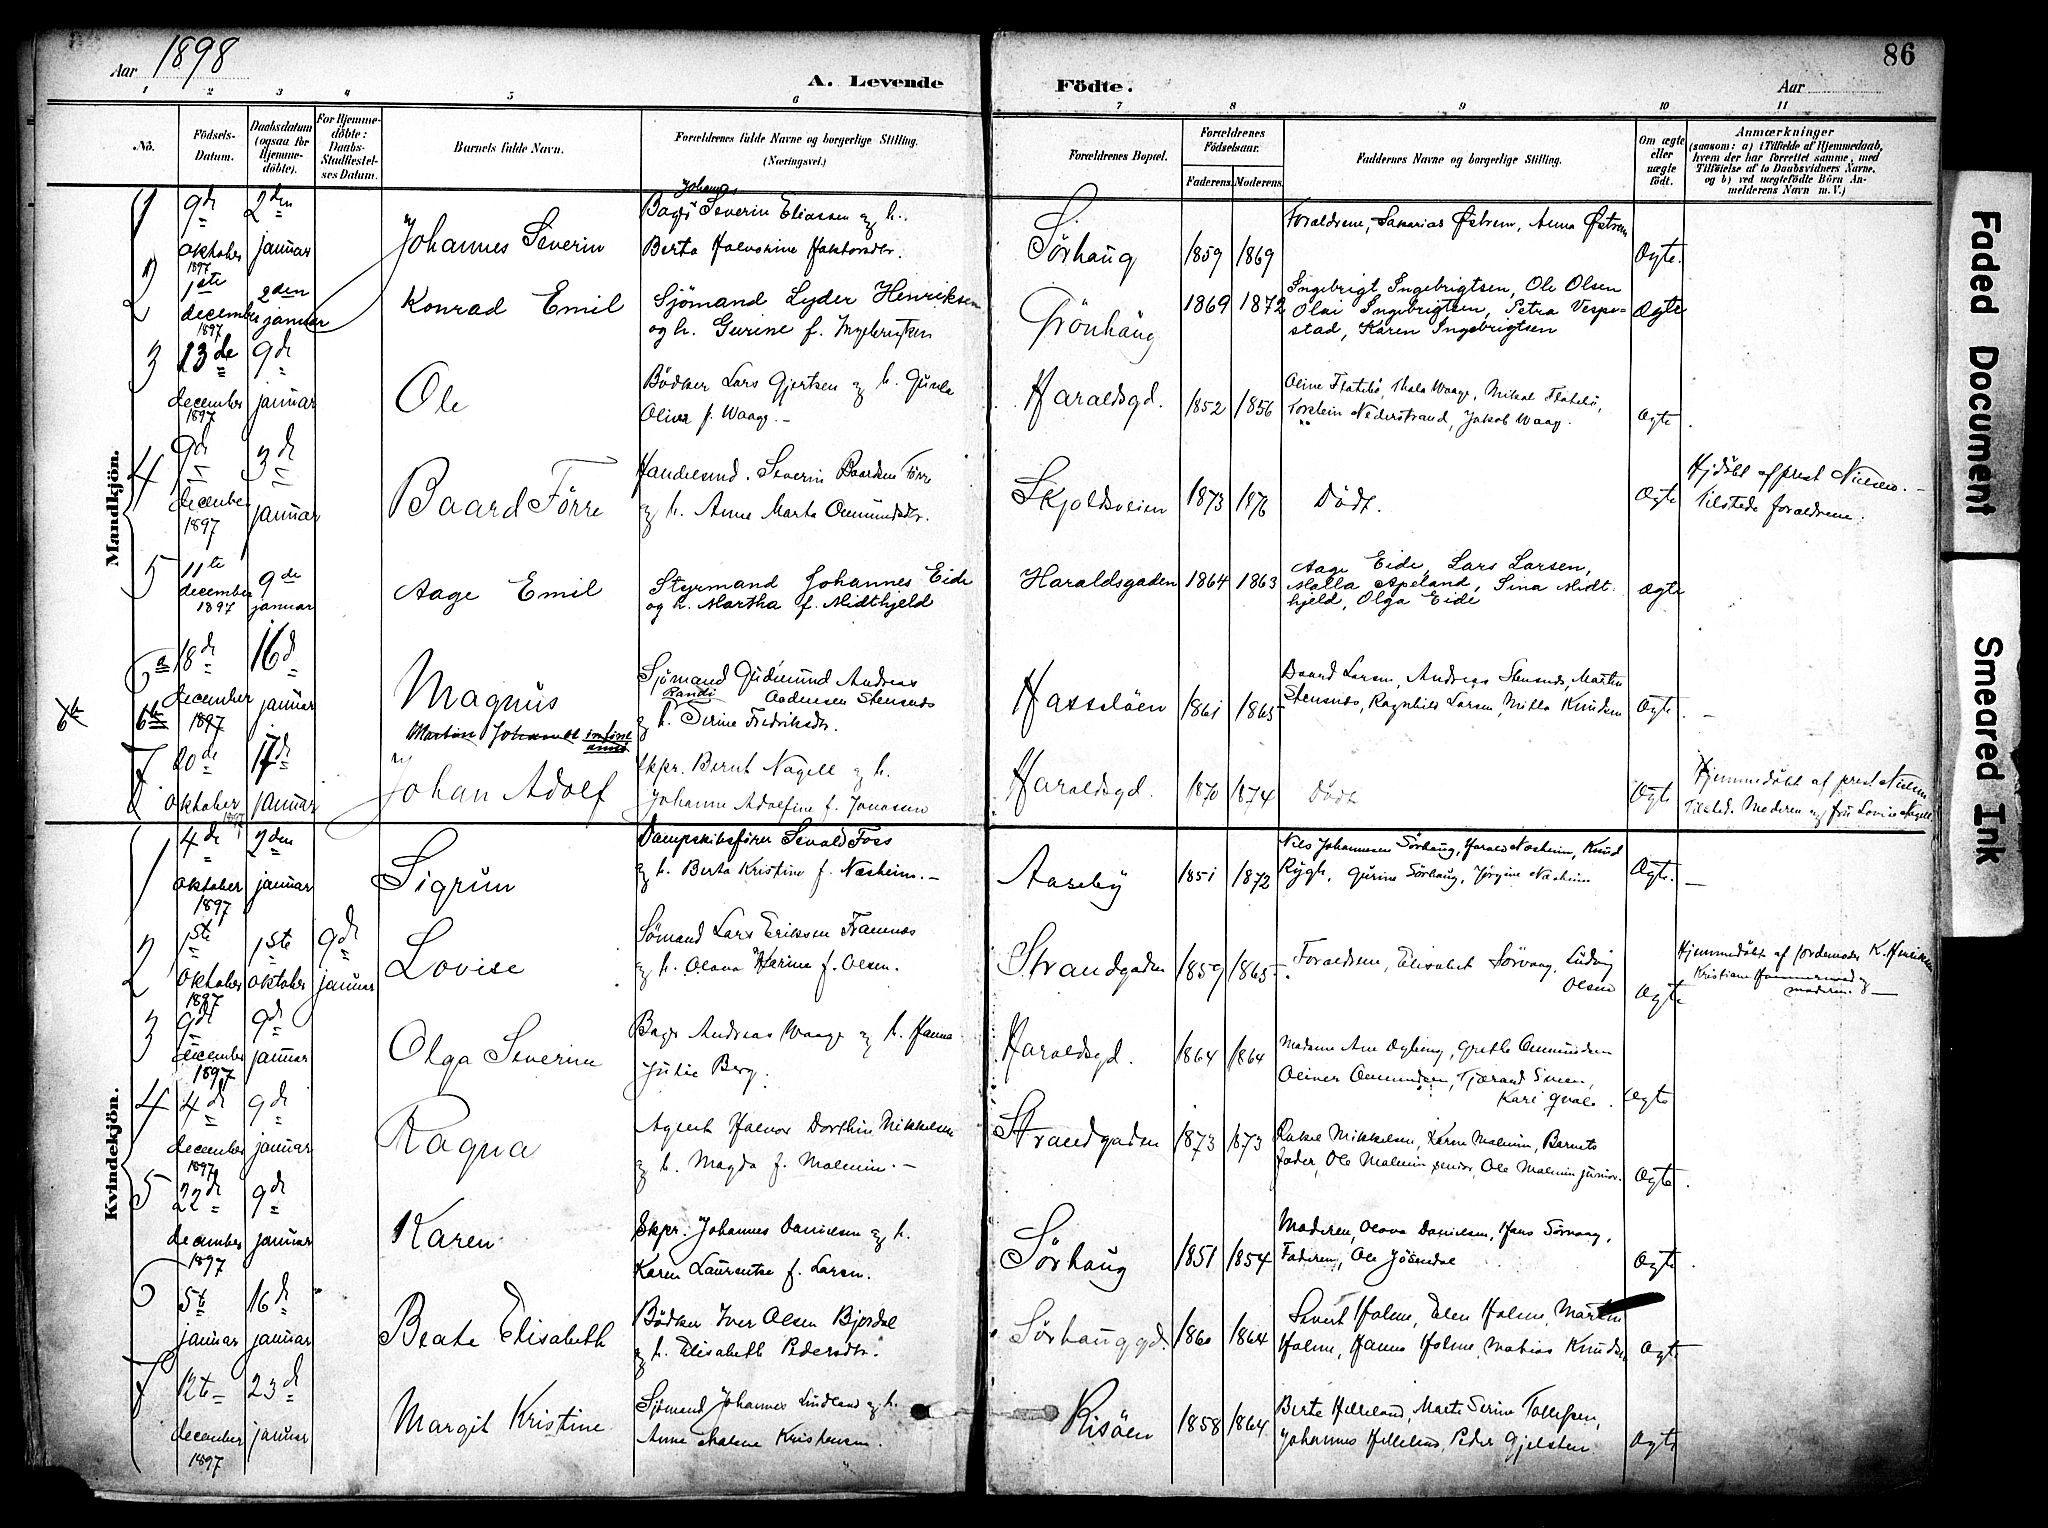 Aar 1898
A. Levende
Födte.
Aar
86
1 2 3 4 5 6 7 8 9 10 11
No.
Födsels-
Datum.
Daabsdatum
(ogsaa for
Hjemme-
döbte).
For Hjemme-
döbte:
Daabs-
Stadfæstel-
ses Datum.
Barnets fulde Navn.
Forældrenes fulde Navne og borgerlige Stilling.
(Næringsvei.)
Forældrenes Bopæl.
Forældrenes
Födselsaar.
Faderens. Moderens.
Faddernes Navne og borgerlige Stilling.
Om ægte
eller
uægte
födt.
Anmærkninger
(saasom: a) i Tilfælde af Hjemmedaab,
hvem der har forrettet samme, med
Tilföielse af to Daabsvidners Navne,
og b) ved uægtefödte Börn An-
melderens Navn m. V.)
Mandkjön.
1 9de oktober 1897 2den januar
Johannes Severin
Johannes
Severin Eliassen og h.
Berta
Sörhaug 1859 1869
Forældrene, Sakarias Østrem, Anna Østrem
Ægte.
2 1ste december 1897 2den januar
Konrad Emil
Sjömand Lyder Henriksen
og h. Gurine f. Ingebrigtsen
Grönhaug
1869 1872
Ingebrigt Ingebrigtsen, Ole Olsen
Olai Ingebrigtsen, Petra Vespe-
stad, Karen Ingebrigtsen
Ægte
3 13de december 1897 9de januar
Ole
Bödker Lars Gjertsen og h. Gunla
Oliva f. Waage.
Haraldsgd. 1852 1856
Mikal
Torstein Nederstrand, Jakob Waag.
Ægte
4 9de december 1897 3de januar
Baard Förre
Handelsmd. Severin Baardsen Förre
og h. Anne Marta Omundsdr.
Skjoldsveien 1873 1876
Dödt.
Ægte
Hjdöbt af prest Nielsen.
Tilstede forældrene.
5 11te december 1897 9de januar
Aage Emil
Styrmand Johannes Eide
og h. Martha f. Midthjeld
Haraldsgaden 1864 1863
Aage Eide, Lars Larsen,
Malla Apeland, Sina Midt-
hjeld, Olga Eide
Ægte
6a 18de december 1897 16de januar
Magnus
Sjömand Gudmund Andreas
Randi Aadnesen Stensnes
og h. Serine Fredriksdr.
Hasselöen 1861 1865
Baard Larsen, Andreas Stensnes, Martin
Stensnes, Ragnhild Larsen, Milla Knudsen
Ægte
6b 6b
Martin Johan
7 20de oktober 1897 17de januar
Johan Adolf
Skpr. Bernt Nagell og h.
Johanne Adolfine f. Jonassen
Haraldsgd. 1870 1874
Dödt
Ægte
Hjemmedöbt af prest Nielsen
Tilsted. Moderen og fru Lovise Nagell
Kvindekjön.
1 4de oktober 1897 2den januar
Sigrun
Dampskibsförer Sevald Foss
og h. Berta Kristine f. Næsheim.
Aaseby 1851 1872
Nils Johannesen Sörhaug, Harald Næsheim, Knud
Rygh, Gurine Sörhaug, Jörgine Næsheim
Ægte.
2 1ste oktober 1897 1ste oktober 9de januar
Lovise
Sömand Lars Eriksen Framnes
og h. Olava Karine f. Olsen.
Strandgaden 1859 1865
Forældrene, Elisabet Sörvaag, Ludvig
Olsen
Ægte
Hjemmedöbt af jordemoder K. Henriksen
Kristiane Hammersmed og
moderen.
3 9de december 1897 9de januar
Olga Severine
Andreas Waage og h. Hanna
Julie Berg.
Haraldsgd. 1864 1864
Madame Ane Dybing, Grethe Omundsen
Oliver Omundsen, Tjærand Svens,
Kari Qvale.
Ægte
4 4de december 1897 9de januar
Ragna
Agent Halvor Dorthin Mikkelsen
og h. Magda f. Malmin.
Strandgaden 1873 1873
Rakel Mikkelsen, Karen Malmin, Barnets
fader, Ole Malmin senior, Ole Malmin junior.
Ægte
5 22de december 1897 9de januar
Karen
Skpr. Johannes Danielsen og h.
Karen Laurentse f. Larsen.
Sörhaug 1851 1854
Moderen, Olava Danielsen, Hans Sörvaag,
Faderen, Ole Jösendal
Ægte
6 5te januar 16de januar
Beate Elisabeth
Bödker Iver Olsen Bjordal
og h. Elisabeth Pedersdtr.
Sörhauggd. 1860 1864
Sivert Holme, Elen Holme, Martin
Holme, Hanna Holme, Mathias Knudsen
Ægte
7 12te december 1897 23de januar
Margit Kristine
Sjömand Johannes Lindland og h.
Anne Malene Kristensen.
Risöen 1858 1864
Berte Helleland, Marte Serine Tollefsen,
Johannes Helleland, Peder Gjelsten
Ægte
Faded Document
Smeared Ink